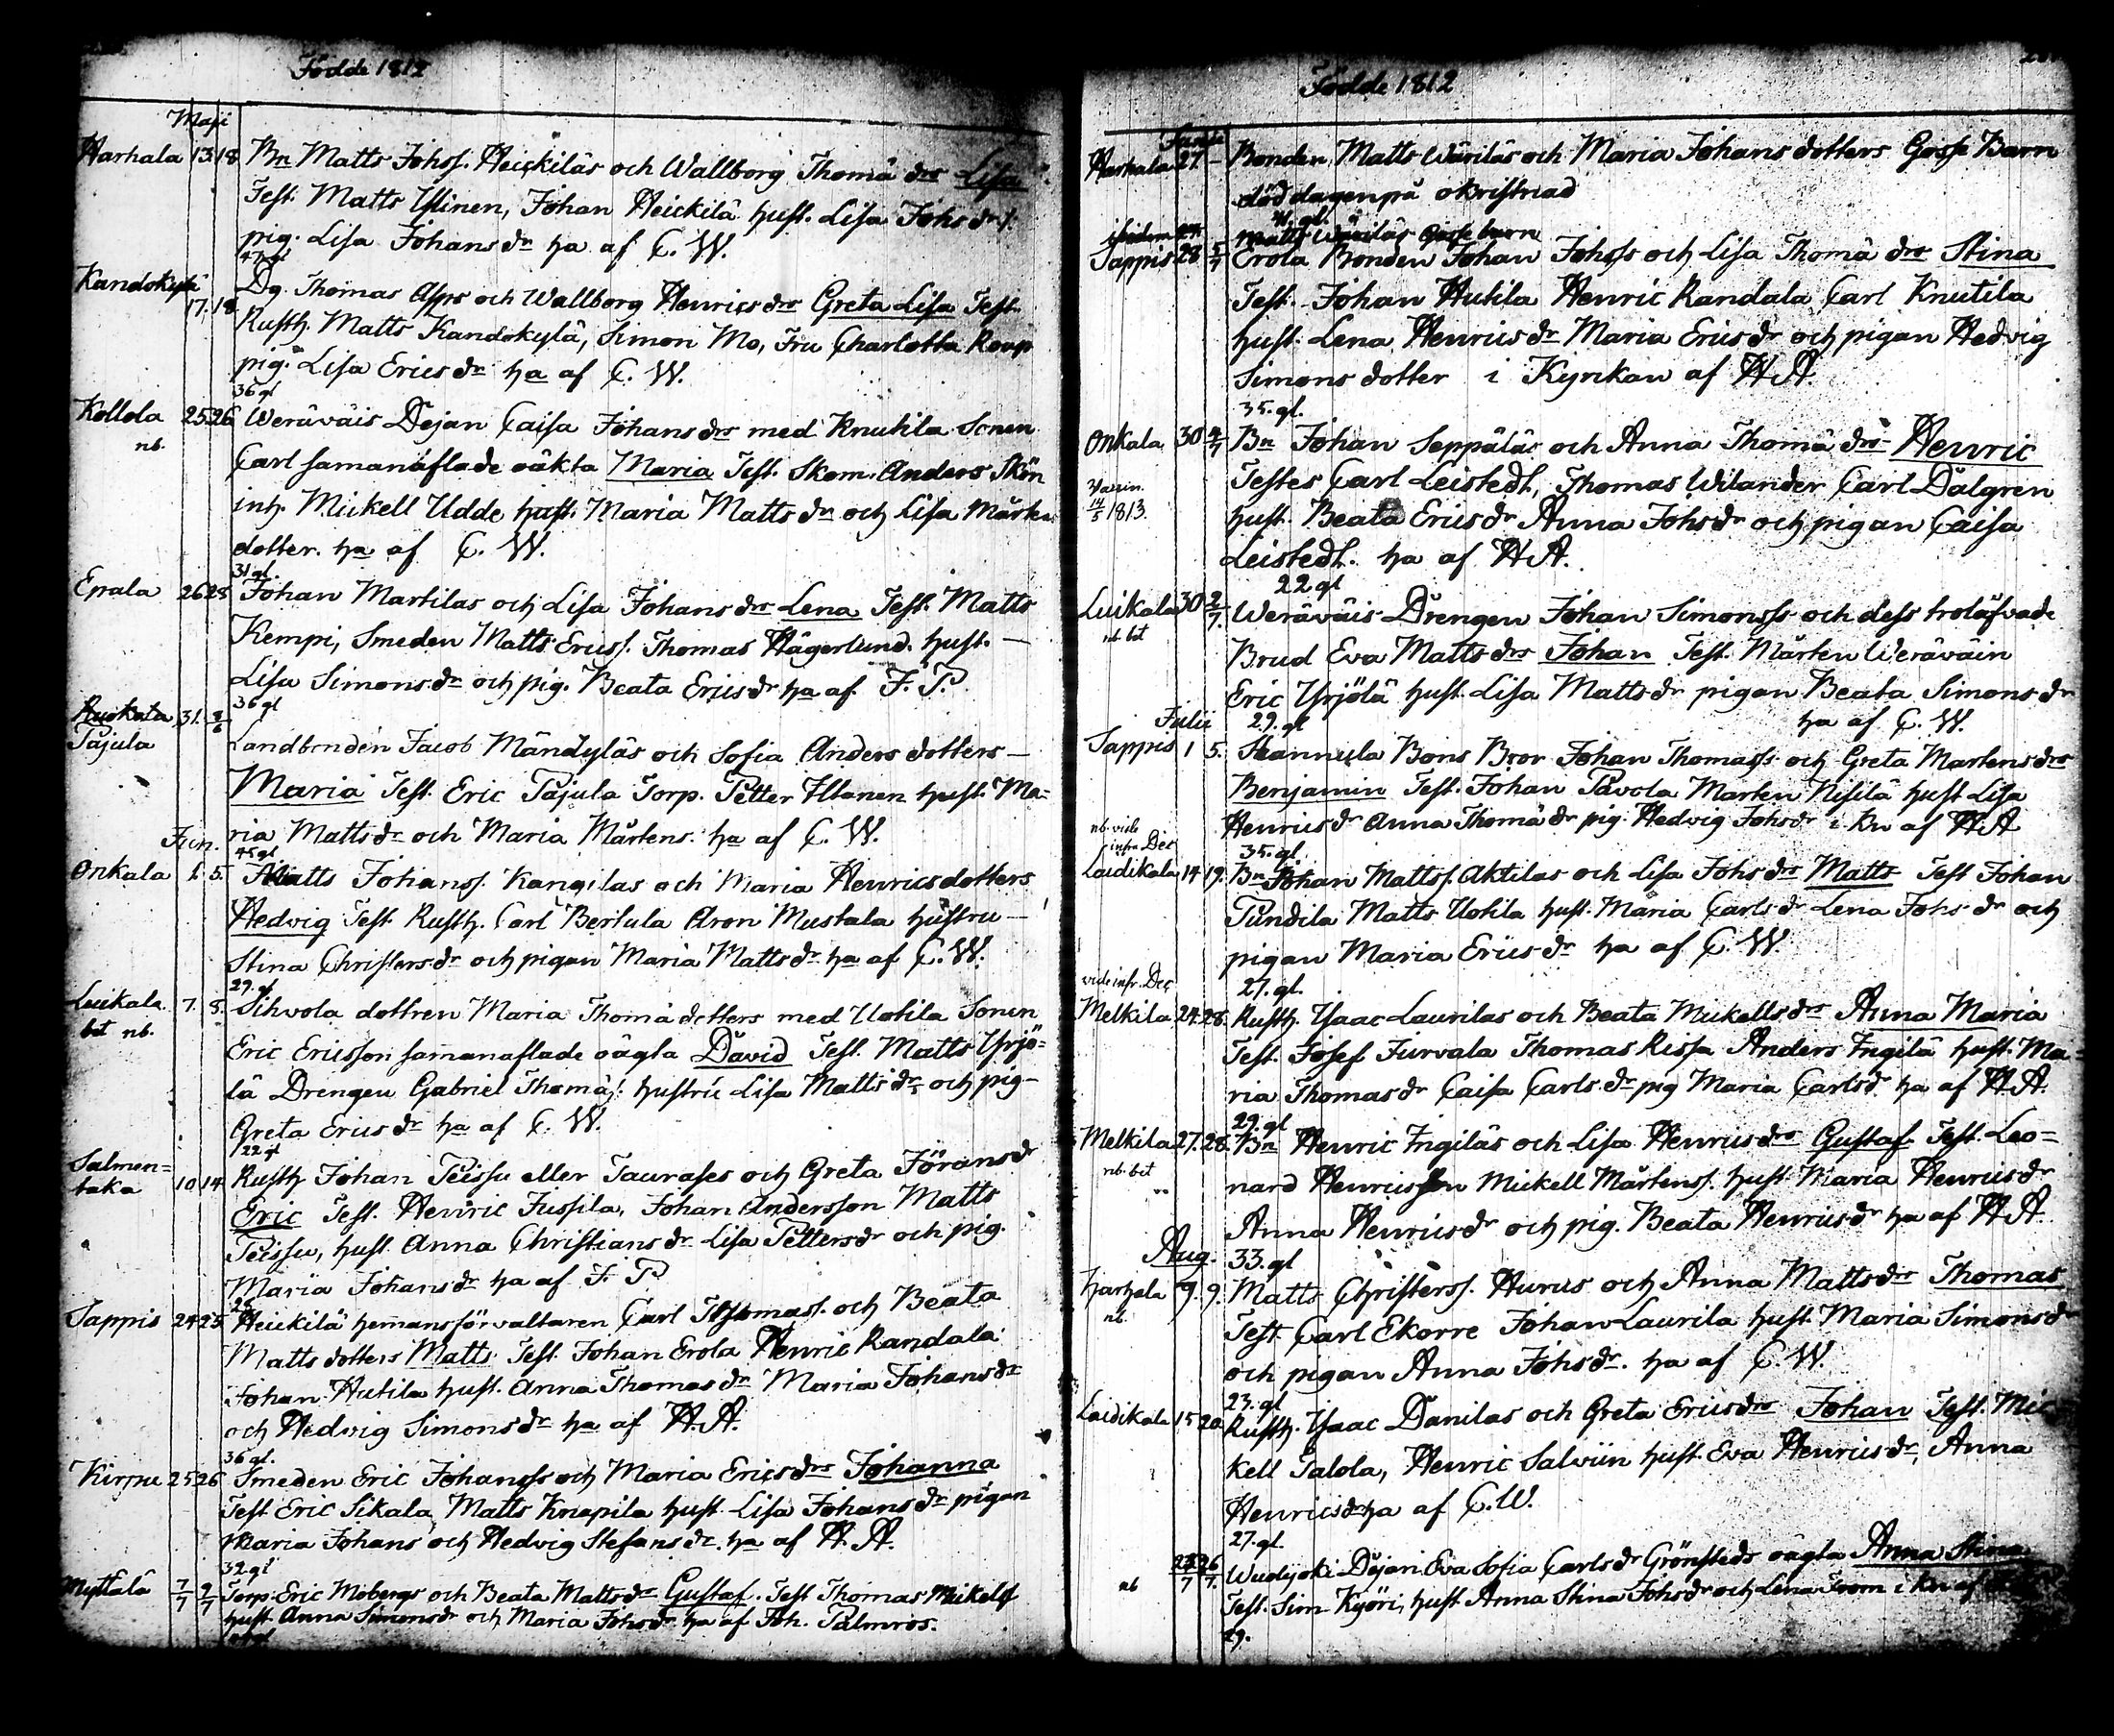 Födde 1812
Maji
Harhala 13. 18 Bn Matts Johss. Heickiläs och Wallborg Thomä drs Lisa
Test. Matts Yllinen, Johan Heickilä hust. Lisa Johsdr
pig. Lisa Johansdr ha af C. W.
47 gl
Kandokylä 17. 18 Dg. Thomas Asps och Wallborg Henricsdrs Greta Lisa Test.
Rusth. Matts Kandokylä, Simon Mo, Fru Charlotta Roup
pig. Lisa Ericsdr ha af C. W.
36 gl
Kollola 25 26 Weräväis Dejan Caisa Johansdrs med Knutila Sonen
nb.
Carl samanaflade oäkta Maria Test. Skom. Anders Skön
inh. Mickell Udde hust. Maria Mattsdr och Lisa Mårtens
dotter. ha af C. W.
31 gl.
Epala 26 28 Johan Martilas och Lisa Johansdrs Lena Test. Matts
Kempi, Smeden Matts Ericss. Thomas Hägerlund. hust. —
Lisa Simonsdr och pig. Beata Ericsdr ha af F. P.
36 gl
Ruokala 31. 8/6
Pajula Landbonden Jacob Mändyläs och Sofia Anders dotters —
Maria Test. Eric Pajula Torp. Petter Yltanen hust. Ma=
ria Mattsdr och Maria Mårtens. ha af C. W.
Jun. 45 gl
Onkala 1. 5. Matts Johanss. Kangilas och Maria Henricsdotters
Hedvig Test. Rusth. Carl Bertula Aron Mustala hustru —
Stina Christersdr och pigan Maria Mattsdr ha af C. W.
29. gl
Luikala 7. 8. Sihvola dottren Maria Thomä dotters med Uotila Sonen
bet nb.
Eric Ericsson samanaflade oägta David Test. Matts Yrjö=
lä Drengen Gabriel Thomäs. hustru Lisa Mattsdr och pig—
Greta Ericsdr ha af C. W.
22 gl
Salmen=
taka 10 14 Rusth Johan Peissu eller Taurases och Greta Göransdr
Eric Test. Henric Jussila, Johan Andersson Matts
Peissu, hust Anna Christiansdr Lisa Pettersdr och pig.
Maria Johansdr ha af F. P.
25
Sappis 24 25 Heickilä hemansförvaltaren Carl Thomass. och Beata
Matts dotters Matts Test. Johan Erola Henric Randala
Johan Hutila hust. Anna Thomasdr Maria Johansdr
och Hedvig Simonsdr ha af H. A.
36 gl.
Kirpu 25 26 Smeden Eric Johanss och Maria Ericsdrs Johanna
Test Eric Sikala Matts Knapila hust Lisa Johansdr pigan
Maria Johans och Hedvig Stefansdr. ha af H. A.
32 gl
Myttälä 7/7 9/7 Torp. Eric Mobergs och Beata Mattsdr Gustaf. Test Thomas Mickels
hust Anna Simonsdr och Maria Johsdr ha af Joh. Palmros.
Födde 1812
Junii
Harhala 27. — Bonden Matts Wäriläs och Maria Johans dotters Gosse Barn
död dagen på okristnad
41. gl.
ibidem 27. Matts Wäriläs Gosse barn
Sappis 28 5/7 Erola Bonden Johan Johss och Lisa Thomä drs Stina
Test. Johan Hutila Henric Randala Carl Knutila
hust. Lena Henricsdr Maria Ericsdr och pigan Hedvig
Simons dotter i Kyrckan af H A.
35. gl.
Onkala 30 4/7 Bn Johan Seppäläs och Anna Thomä drs Henric
Testes Carl Leistedt, Thomas Wilander Carl Dalgren
Vaccin.
14/5 1813. hust. Beata Ericsdr Anna Johsdr och pigan Caisa
Leistedt. ha af H A.
22 gl
Luikala 30 2/7. Weräväis Drengen Johan Simonss och dess trolåfvade
nb bet
Brud Eva Mattsdrs Johan Test. Mårten Weräväin
Eric Yrjölä hust. Lisa Mattsdr pigan Beata Simonsdr
Julii 29. gl ha af C. W.
Sappis 1 5. Hannula Bons Bror Johan Thomass och Greta Martensdrs
Benjamin Test. Johan Pavola Marten Nisilä hust Lisa
Henricsdr Anna Thomä dr pig. Hedvig Johsdr i Kn af H A
nb. vide
infra Dec 35. gl.
Laidikala 14 19. Bn Johan Mattss. Aktilas och Lisa Johsdrs Matts Test Johan
Pundila Matts Uotila hust. Maria Carlsdr Lena Johsdr och
pigan Maria Ericsdr ha af C. W.
vide infr. Dec 27. gl.
Melkila 24. 28. Rusth. Ysaac Laurilas och Beata Mickellsdrs Anna Maria
Test. Josef Jurvala Thomas Rissa Anders Ingilä hust. Ma=
ria Thomasdr Caisa Carlsdr pig Maria Carlsdr ha af H. A.
29. gl
Melkila 27. 28. Bn Henric Ingiläs och Lisa Henricsdrs Gustaf. Test. Leo=
nb. bet
nard Henricsson Mickell Mårtens. hust. Maria Henricsdr
Anna Henricsdr och pig. Beata Henricsdr ha af H A.
Aug. 33. gl
Harhala 9. 9. Matts Christerss. Hurus och Anna Mattsdrs Thomas
nb.
Test. Carl Ekorre Johan Laurila hust Maria Simonsdr
och pigan Anna Johsdr. ha af C. W.
23. gl
Laidikala 15 20. Rusth. Ysaac Danilas och Greta Ericsdrs Johan Test. Mic
kell Talola, Henric Salviin hust. Eva Henricsdr, Anna
Henricsdr ha af C. W.
27. gl.
25/7 26/7. Wudijoki Dejan Eva Sofia Carlsdr Grönsteds oägta Anna Stina
nb Test. Sim Kyöri, hust Anna Stina Johsdr och Lena From i Kn af
29.